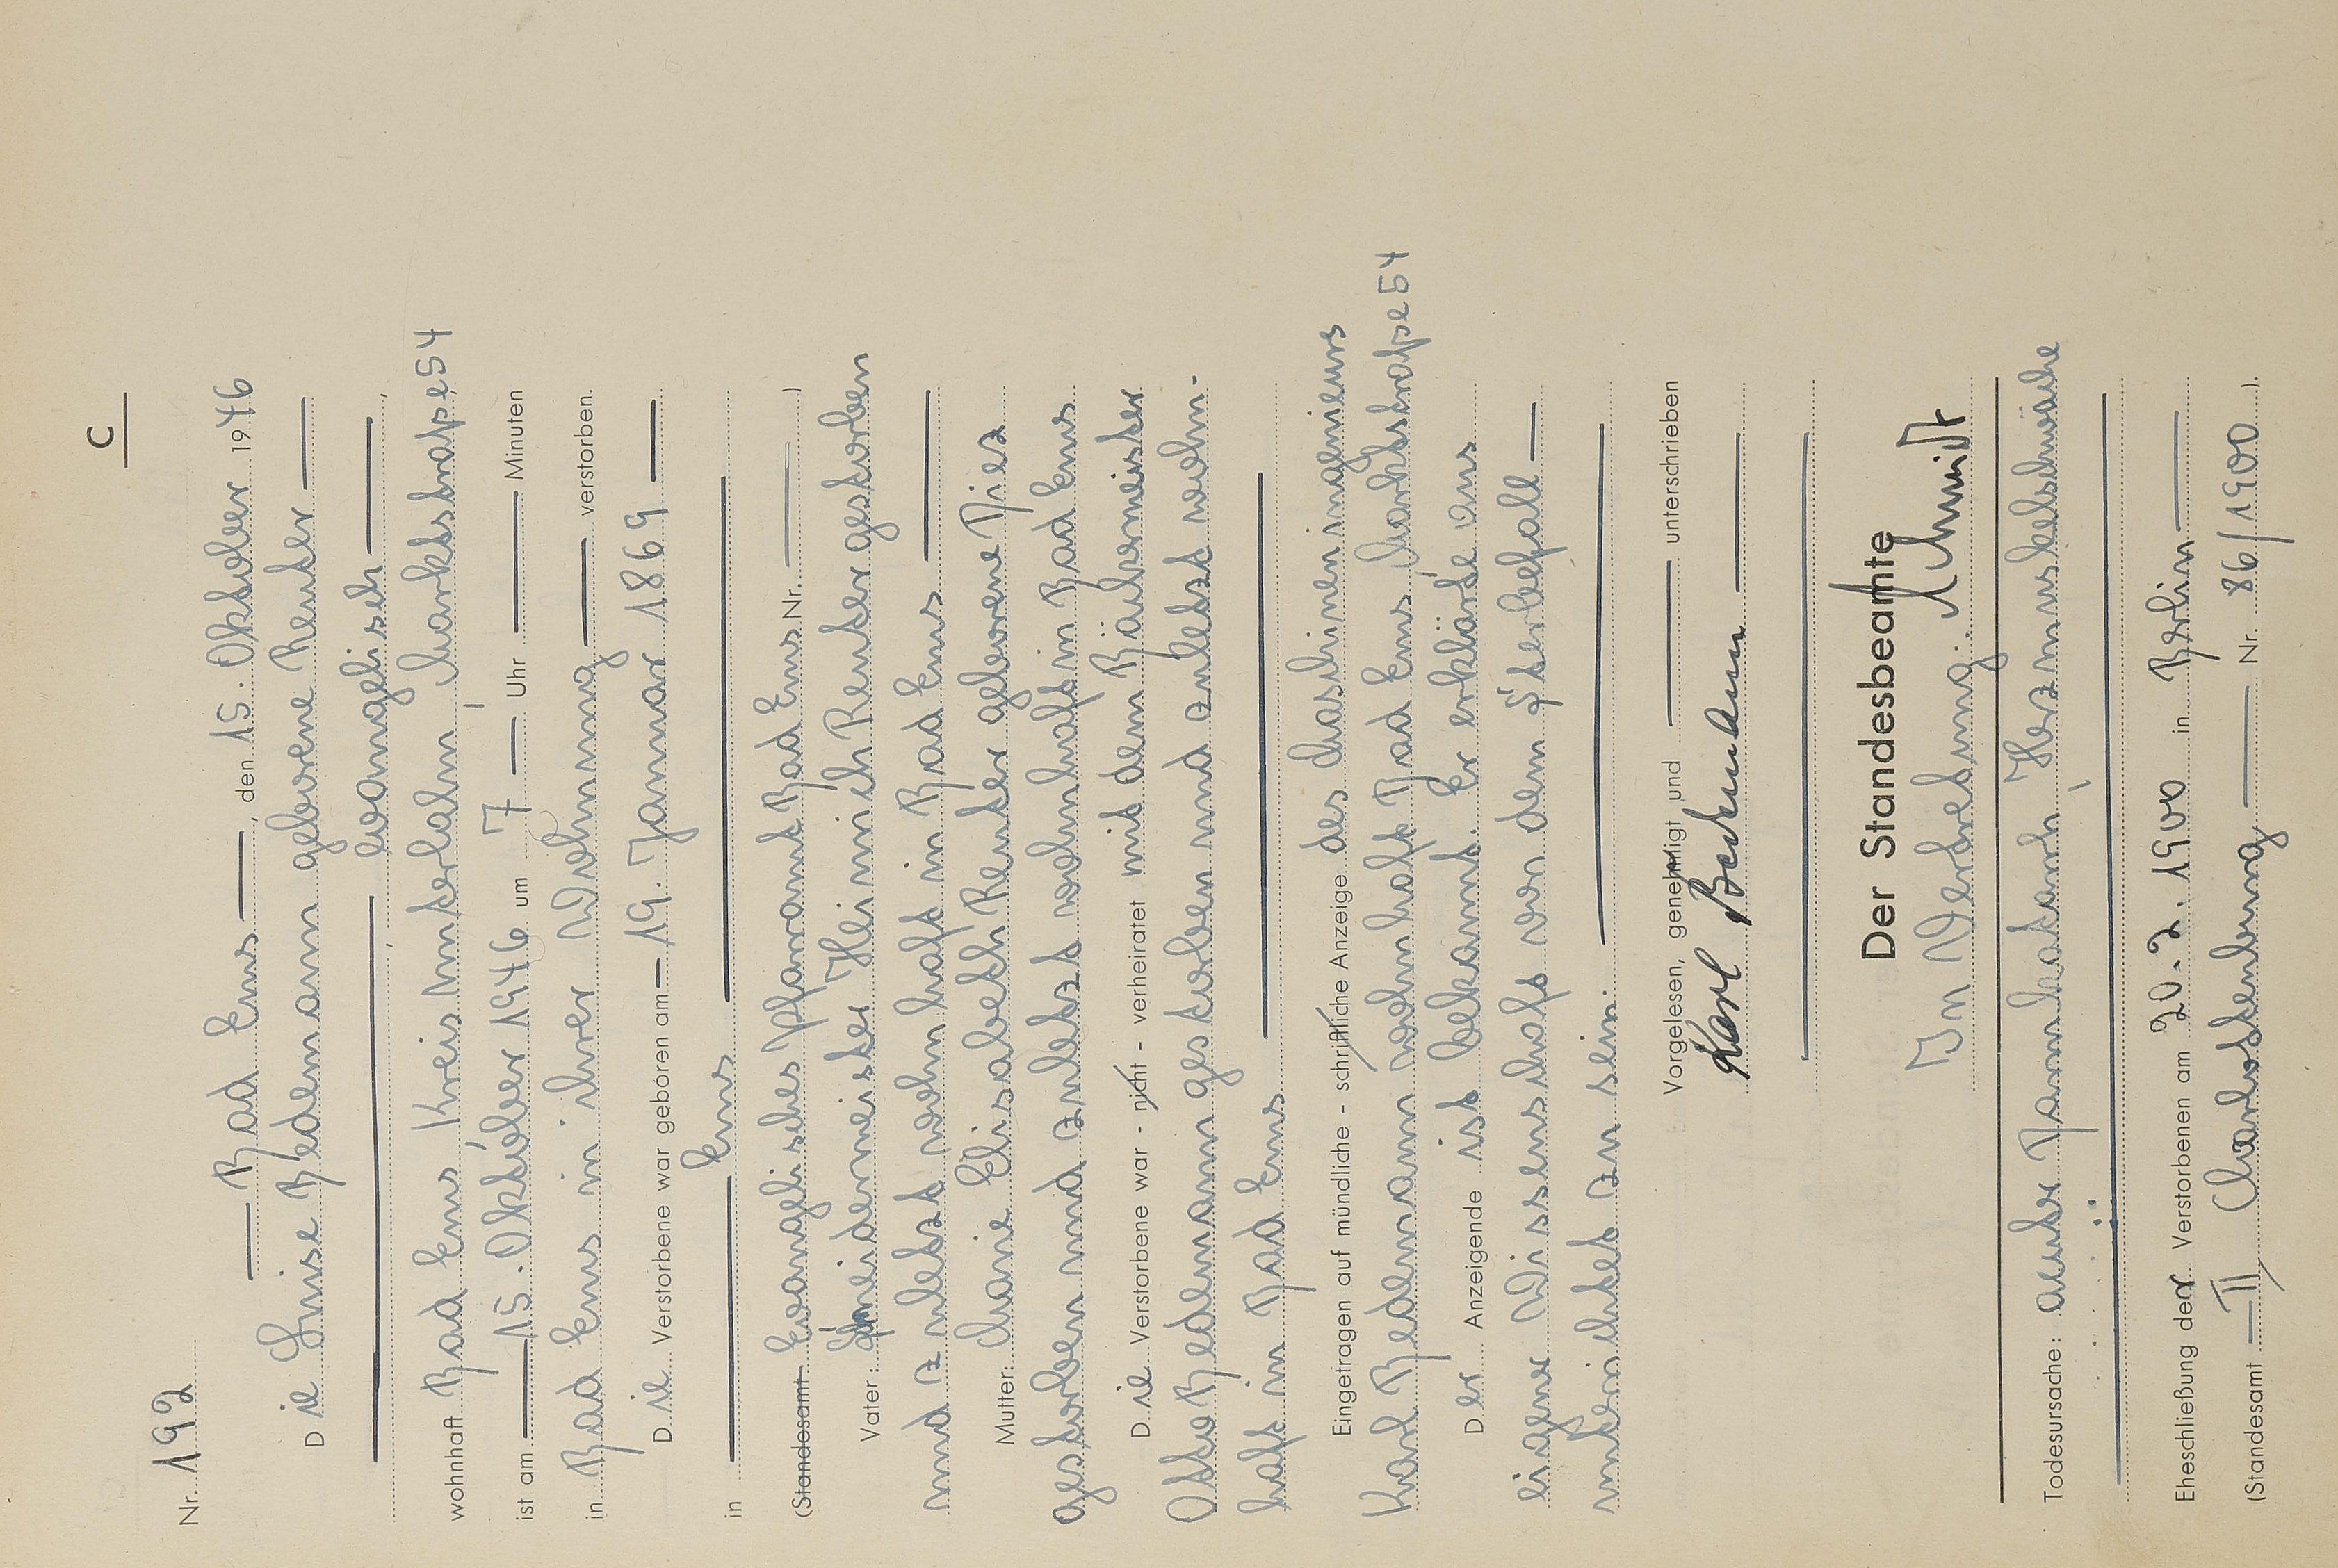 C
Nr. 192
— Bad Ems —, den 15. Oktober 1946
Die Luise Bedemann geborene Reuter —
— evangelisch —,
wohnhaft Bad Ems Kreis Unterlahn, Marktstraße 54
ist am — 15. Oktober 1946 um 7 — Uhr — Minuten
in Bad Ems in ihrer Wohnung — verstorben.
Die Verstorbene war geboren am — 19. Januar 1869 —
in — Ems —
(Standesamt Evangelisches Pfarramt Bad Ems Nr. — )
Vater: Schneidermeister Heinrich Reuter gestorben
und zuletzt wohnhaft in Bad Ems —
Mutter: Marie Elisabeth Reuter geborene Diez
gestorben und zuletzt wohnhaft in Bad Ems
Die Verstorbene war - nicht - verheiratet mit dem Bäckermeister
Otto Bedemann gestorben und zuletzt wohn-
haft in Bad Ems —
Eingetragen auf mündliche - schriftliche Anzeige des Maschineningenieurs
Karl Bedemann wohnhaft Bad Ems, Marktstraße 54
Der Anzeigende ist bekannt. Er erklärte aus
eigener Wissenschaft von dem Sterbefall —
unterrichtet zu sein. —
Vorgelesen, genehmigt und — unterschrieben
Karl Bedemann —
Der Standesbeamte
In Vertretung: Schmidt
Todesursache: acuter Darmkatarrh, Herzmuskelschwäche
Eheschließung der Verstorbenen am 20.2.1900 in Berlin —
(Standesamt — II, Charlottenburg — Nr. 86/1900 ).